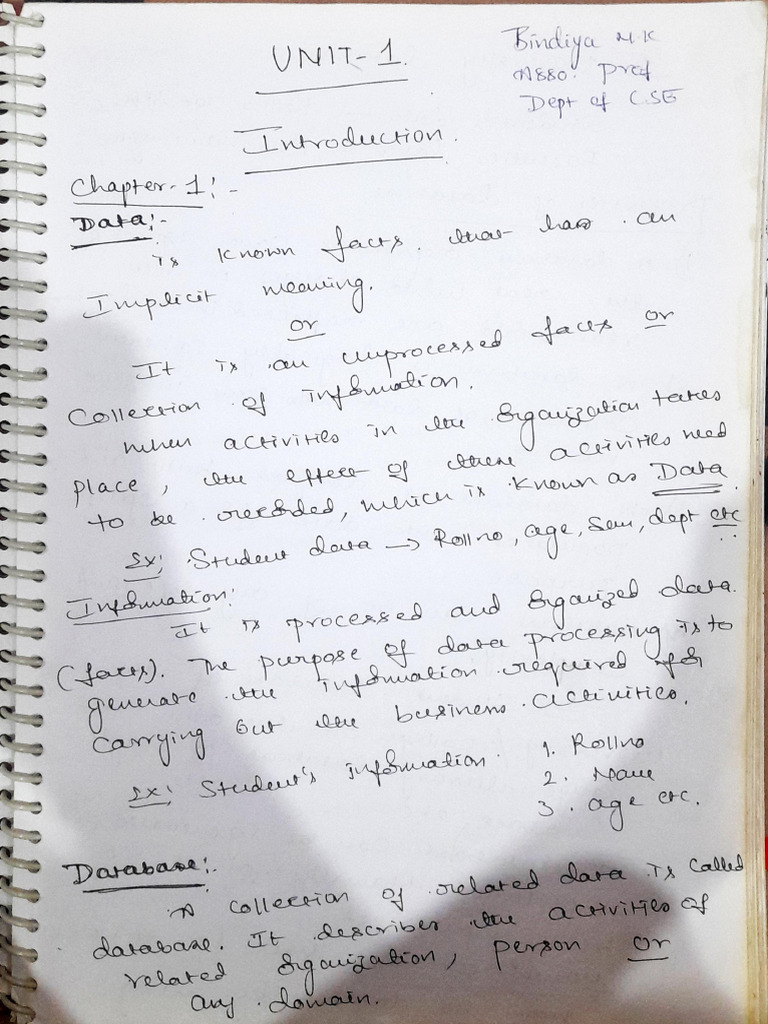 UNIT-1.
Bindiya M.K
Asso. Prof
Dept of CSE
Introduction.
Chapter-1:-
Data:-
is known facts. that has an
Implicit meaning.
or
It is an unprocessed facts or
Collection of information.
When activities in the Organization takes
place, the effect of these activities need
to be recorded, which is known as Data
Ex: Student data → Rollno, age, Sem, dept etc
Information:
It is processed and organized data.
(facts). The purpose of data processing is to
generate the information required for
carrying out the business activities.
Ex: Student's information.
1. Rollno
2. Name
3. age etc.
Database:-
A collection of related data is called
database. It describes the activities of
related organization, person or
any domain.